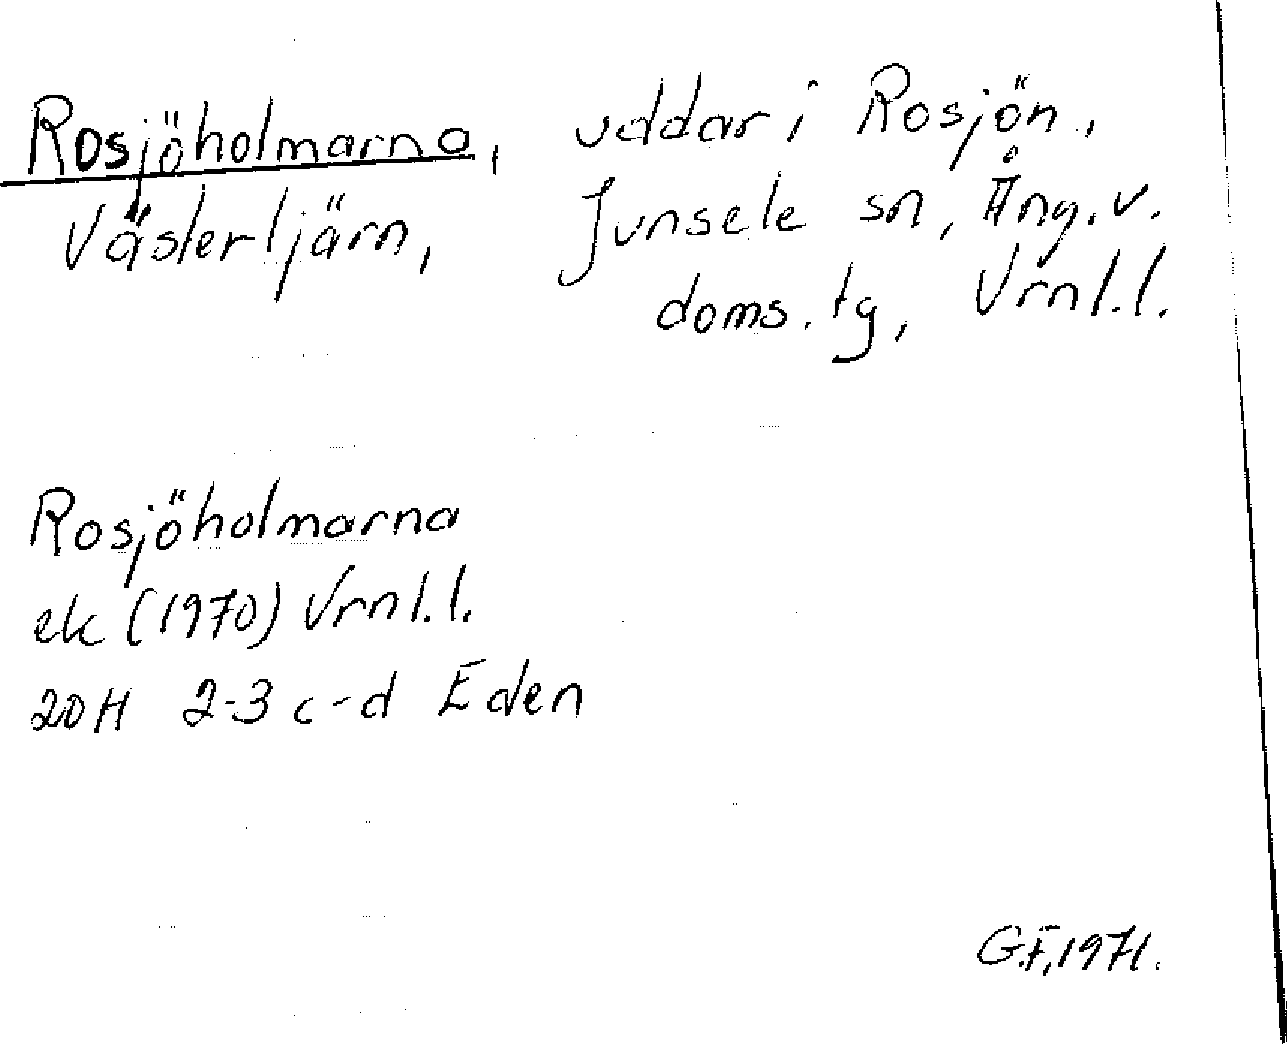 Rosjöholmarna, uddar i Rosjön,
Västertjärn, Junsele sn, Ång.v.
doms. tg, Vrnl.l.
Rosjöholmarna
ek (1970) Vrnl.l.
20H 2-3 c-d Eden
G.F, 1971.